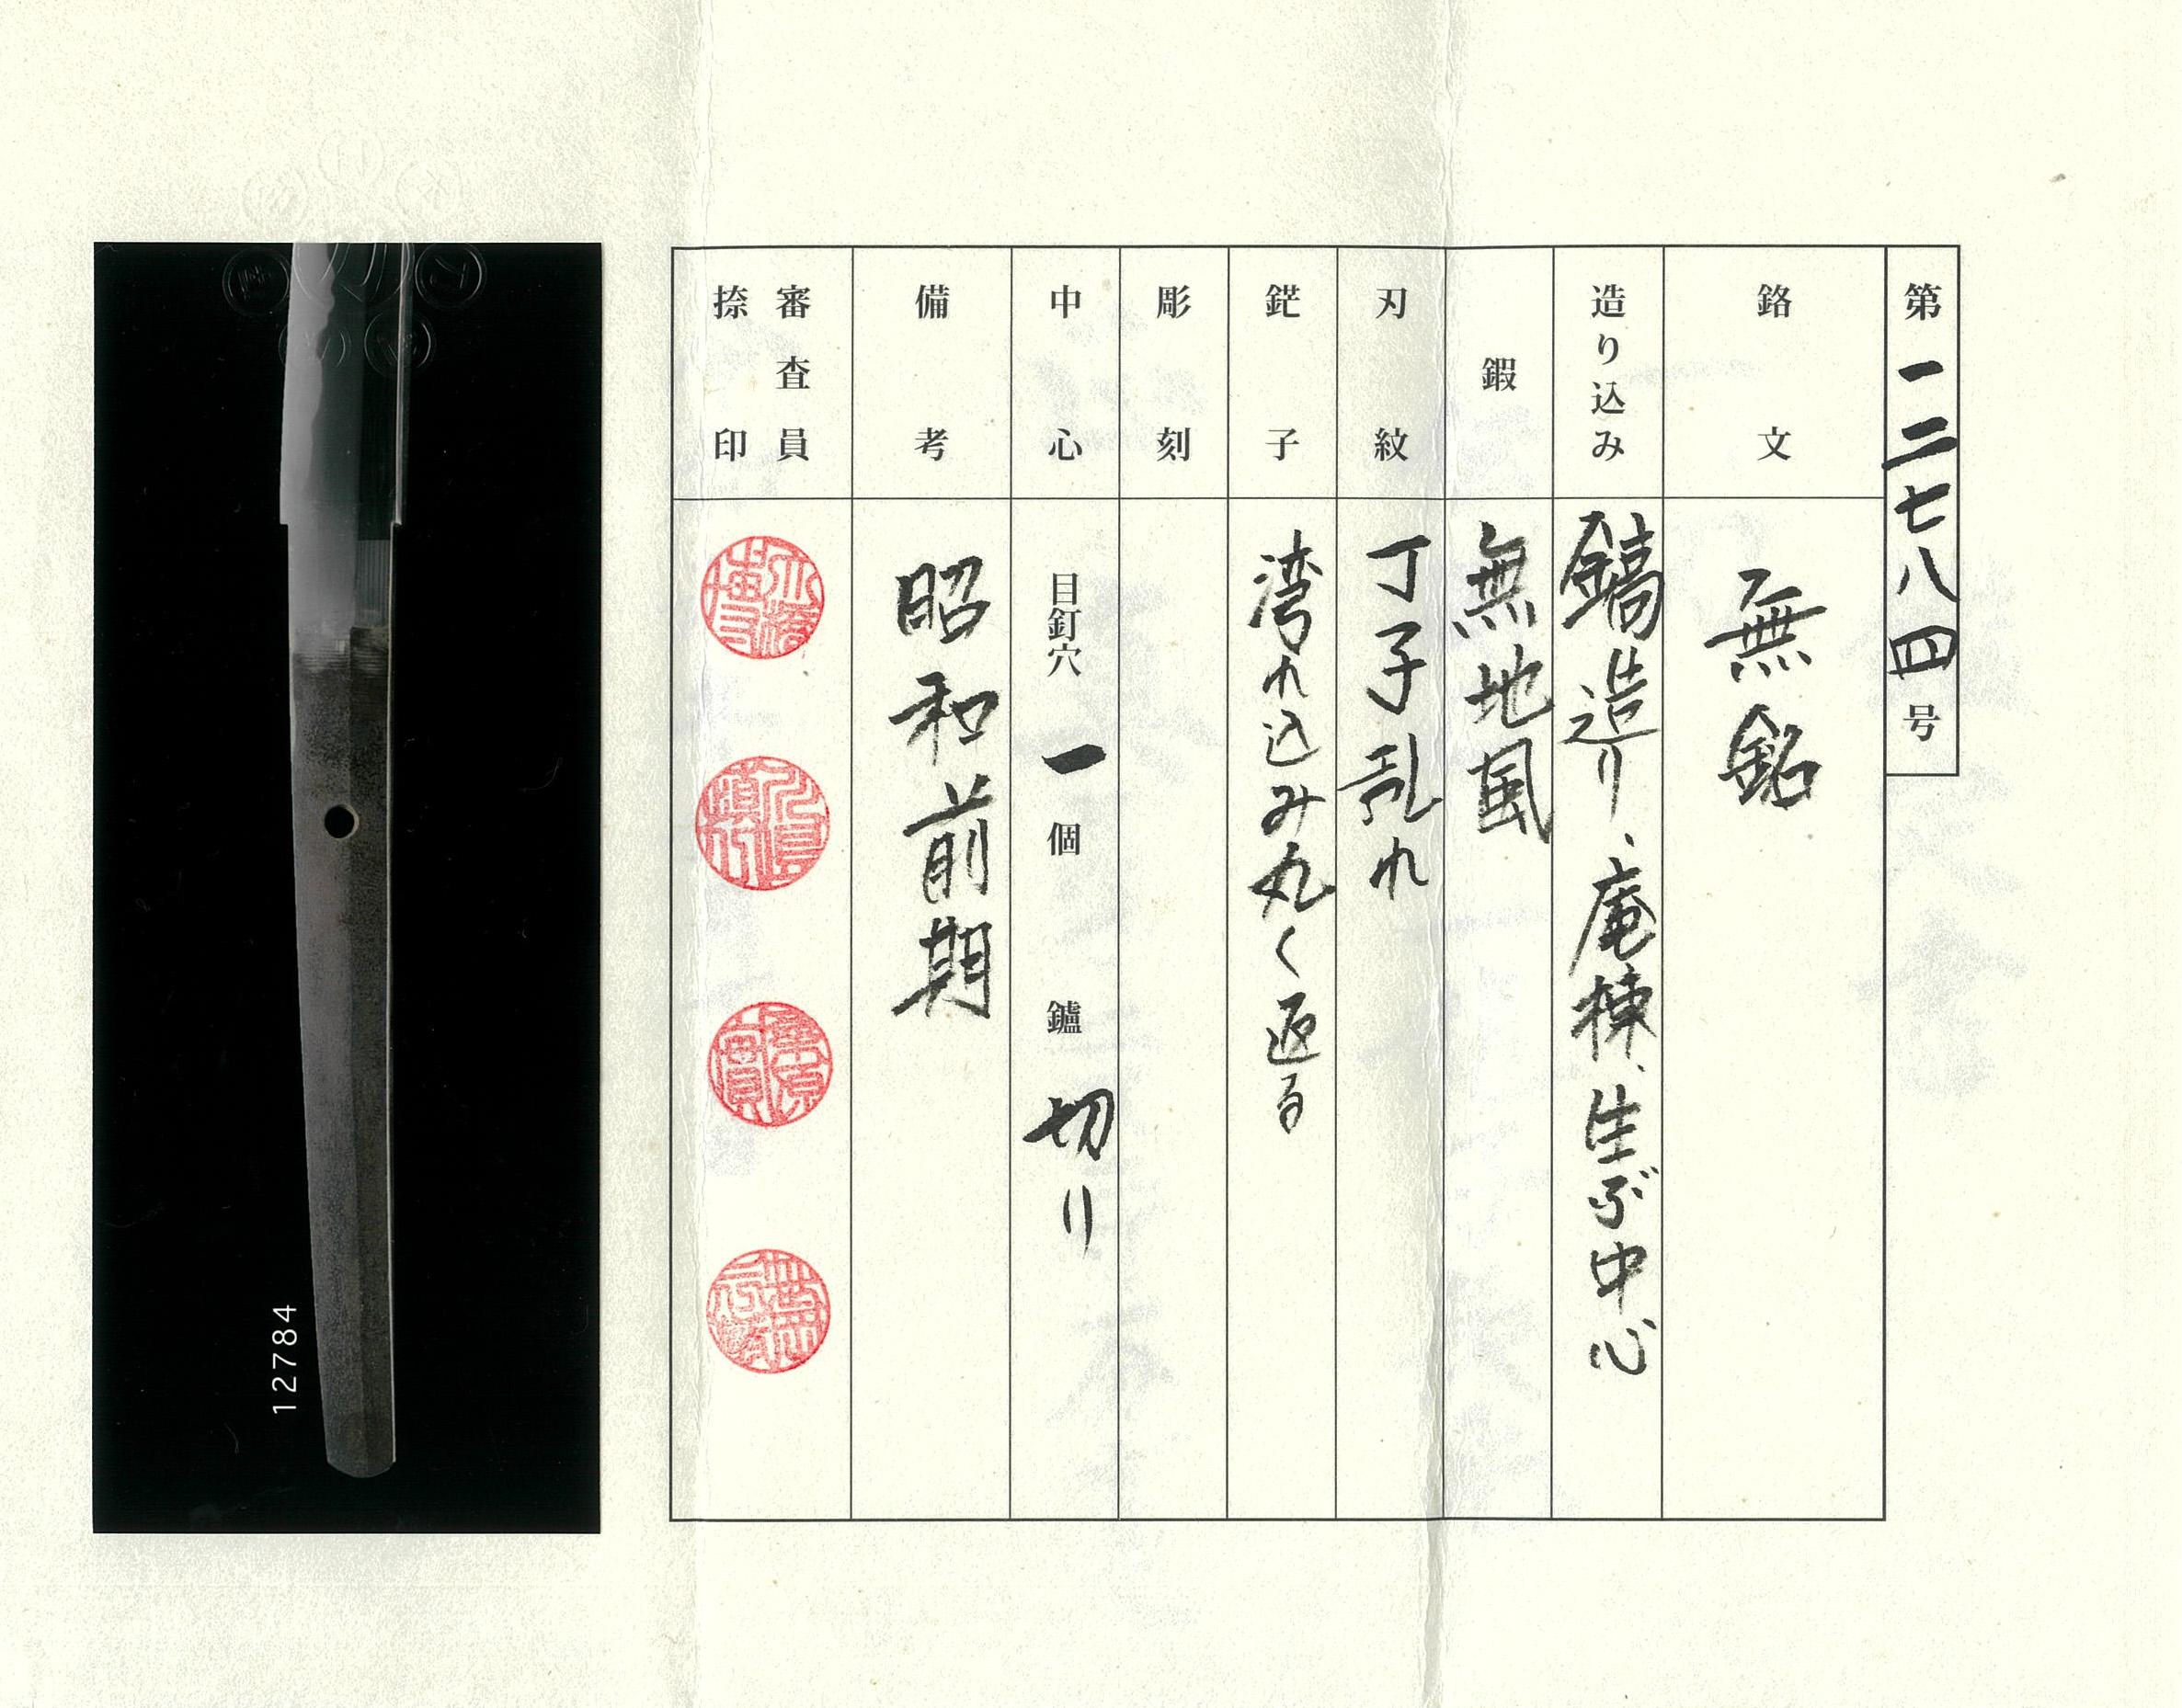 第一二七八四号
銘文 無銘
造り込み 鎬造り、庵棟、生ぶ中心
鍜 無地風
刃紋 丁子乱れ
鋩子 湾れ込み丸く返る
彫刻
中心 目釘穴 一個 鑢 切り
備考 昭和前期
審査員
捺印
12784